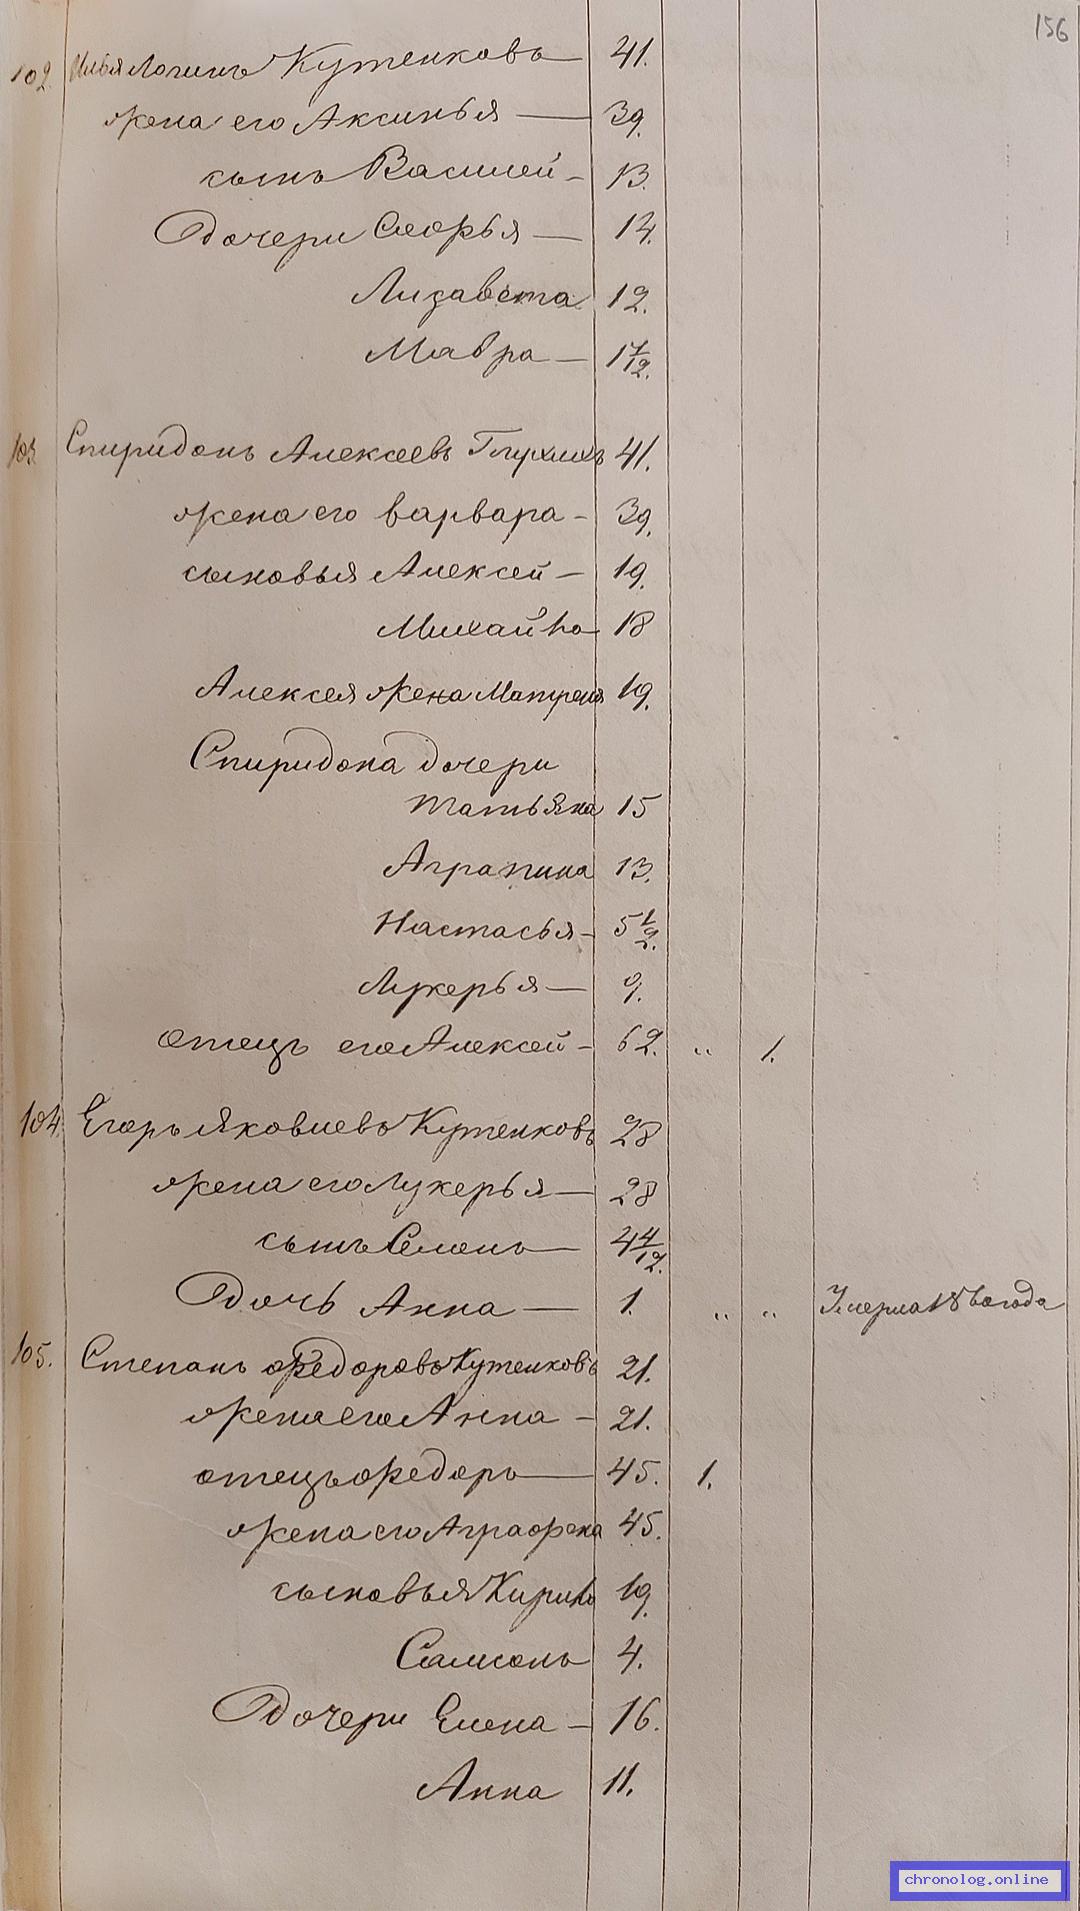 156
102. Илья Логинъ Кутенковъ 41.
жена его Аксинья 39.
сынъ Василей 13.
Дочери 14.
Лизавета 12.
Мавра 1 1/12.
103. Спиридонъ Алексеевъ Глухихъ 41.
жена его варвара 39.
сыновья Алексей 19.
Михайло 18
Алексея жена Матрена 19.
Спиридона дочери
татьяна 15
Аграпина 13.
Настасья 5 1/2.
Лукерья 9.
отецъ его Алексей 62. „ 1.
104. Егоръ Яковлевъ Кутенковъ 28
жена его Лукерья 28
сынъ Семенъ 4 4/12.
Дочь Анна 1. „ „ Умерла года
105. Степанъ Федоровъ Кутенковъ 21.
жена его Анна 21.
отецъ Федоръ 45. 1.
жена его Аграфена 45.
сыновья Кирило 19.
Самсонъ 4.
Дочери Елена 16.
Анна 11.
chronolog.online